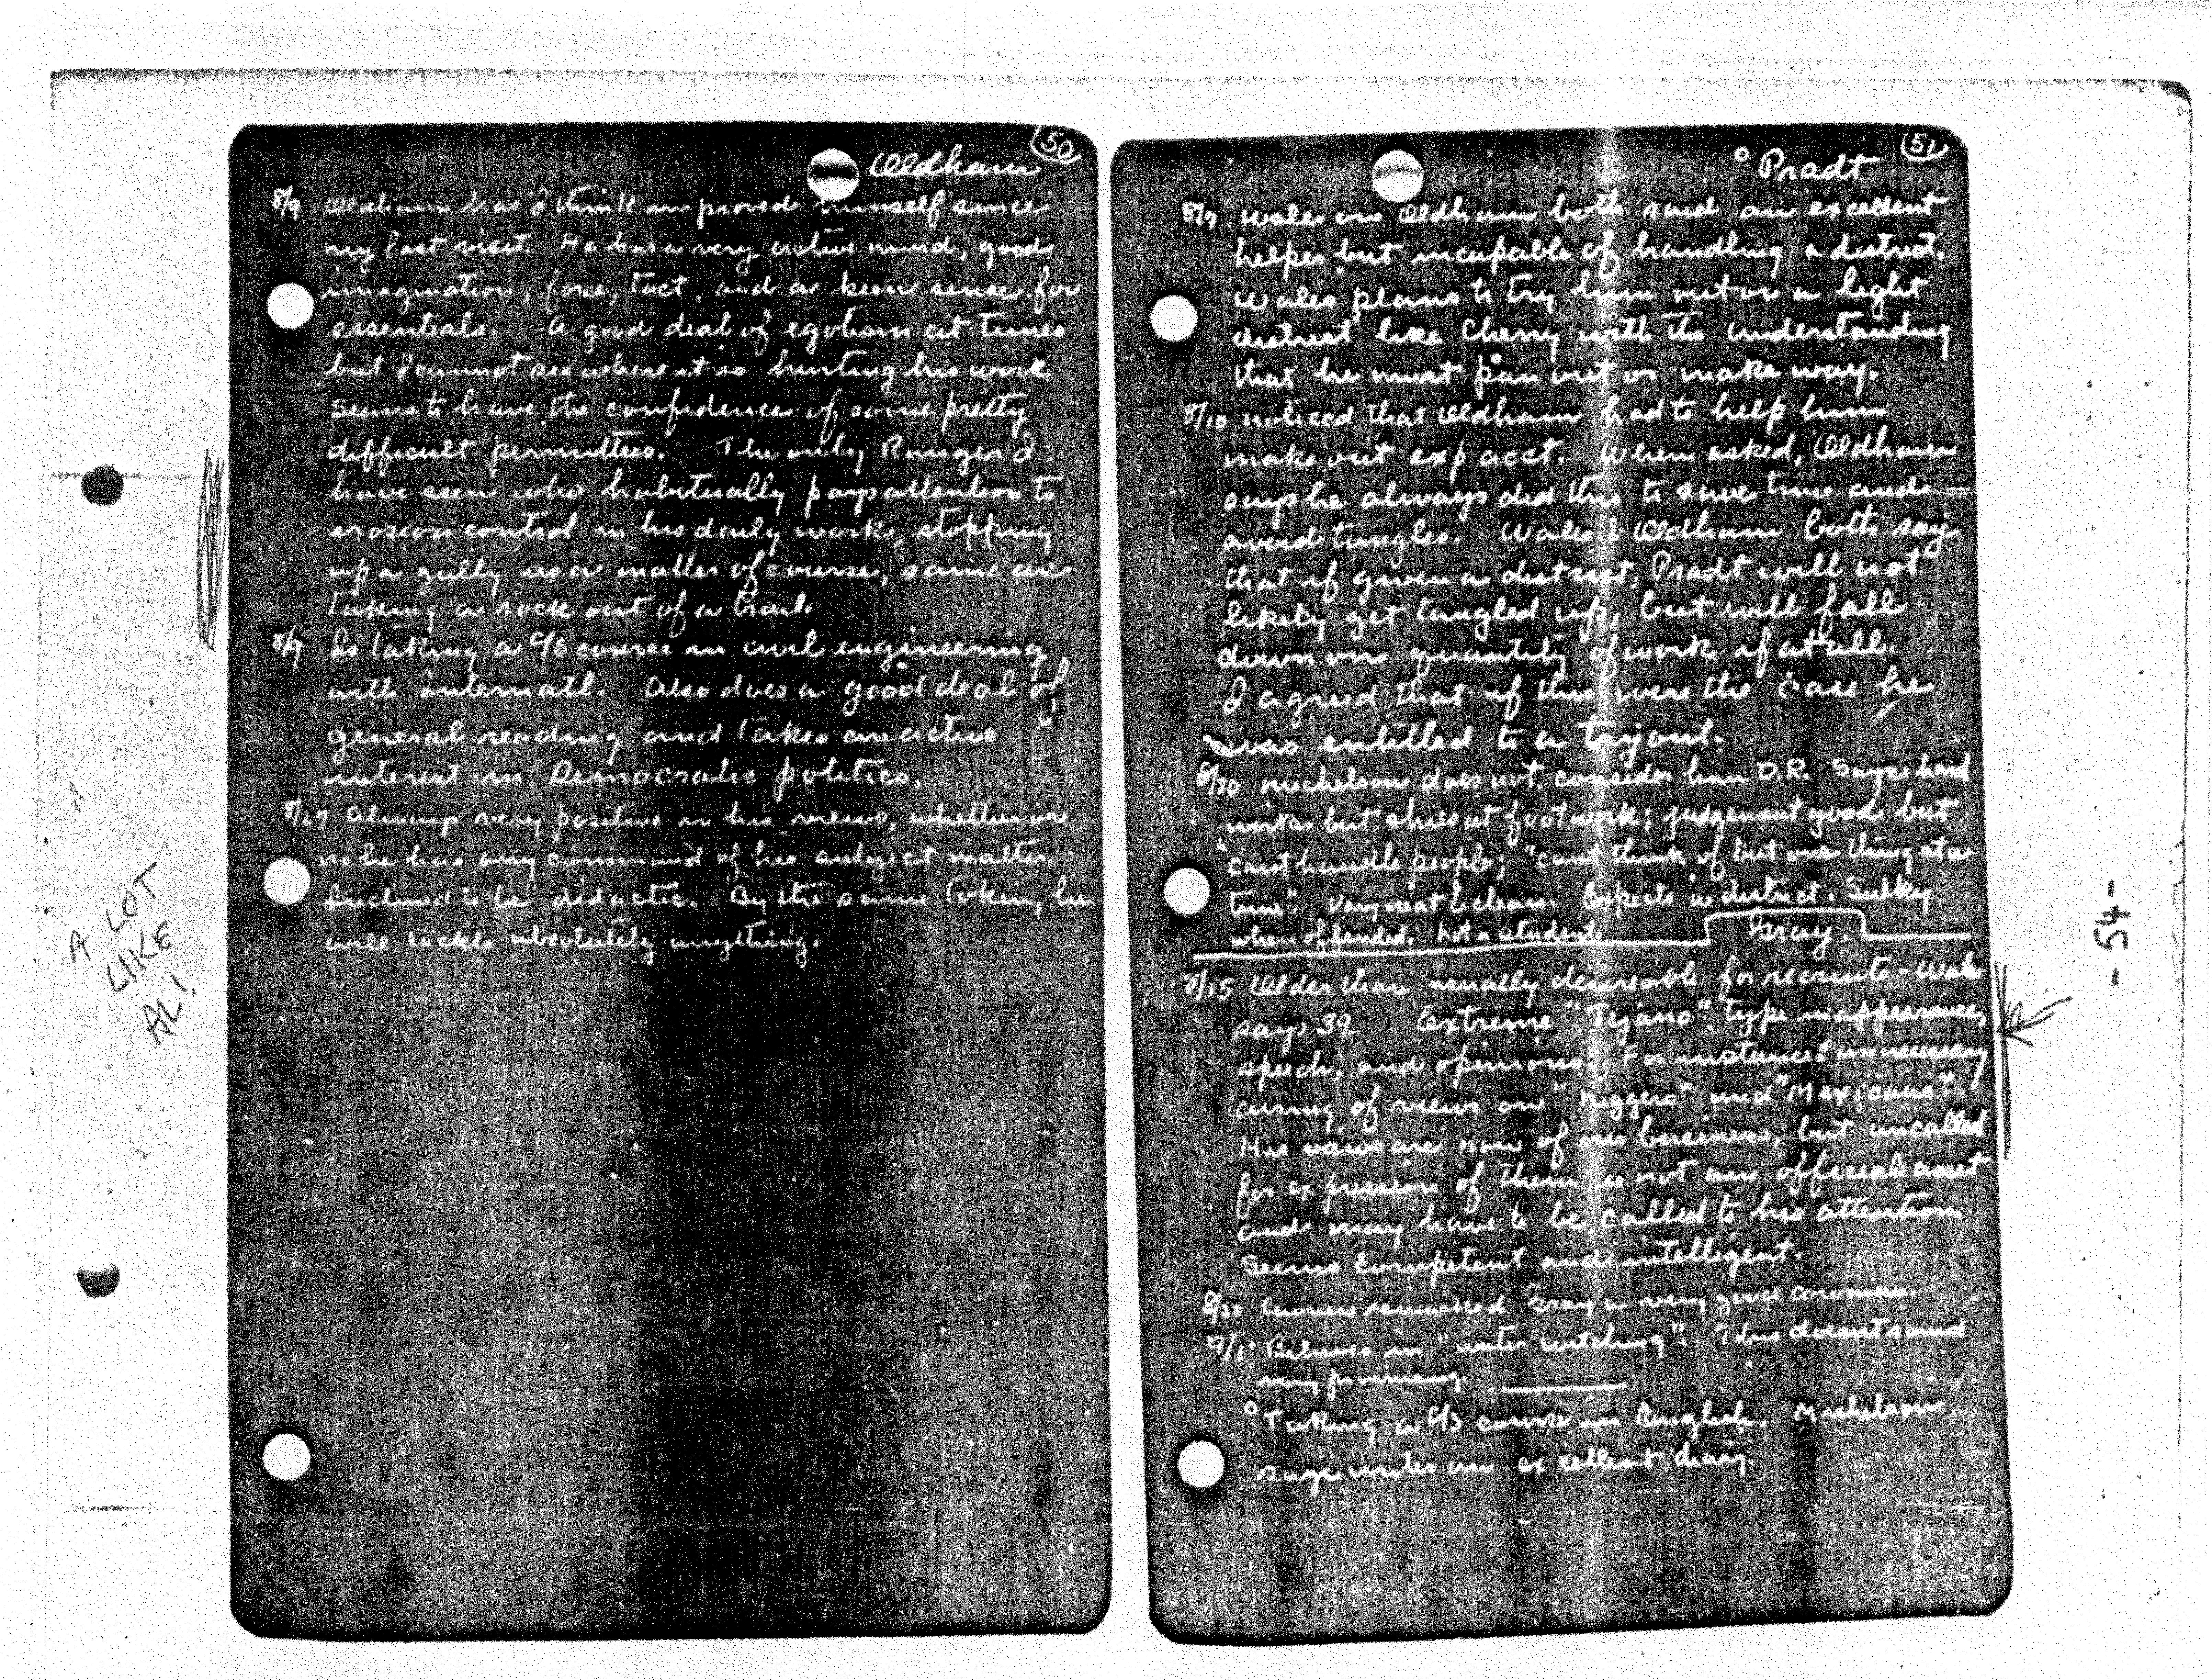 50
Oldham
8/9 Oldham has I think improved himself since
my last visit. He has a very active mind, good
imagination, force, tact, and a keen sense for
essentials. A good deal of egotism at times
but I cannot see where it is hurting his work.
Seems to have the confidence of some pretty
difficult permittees. The only Ranger I
have seen who habitually pays attention to
erosion control in his daily work, stopping
up a gully as a matter of course, same as
taking a rock out of a trail.
8/9 Is taking a C/S course in civil engineering
with Internatl. Also does a good deal of
general reading and takes an active
interest in Democratic politics.
8/27 Always very positive in his views, whether or
no he has any command of his subject matter.
Inclined to be didactic. By the same token, he
will tackle absolutely anything.
A LOT
LIKE
AL!
51
° Pradt
8/7 Wales and Oldham both said an excellent
helper but incapable of handling a district.
Wales plans to try him out on a light
district like Cherry with the understanding
that he must pan out or make way.
8/10 noticed that Oldham had to help him
make out exp acct. When asked, Oldham
says he always did this to save time and
avoid tangles. Wales & Oldham both say
that if given a district, Pradt will not
likely get tangled up, but will fall
down on quantity of work if at all.
I agreed that if this were the case he
was entitled to a tryout.
8/20 Michelson does not consider him D.R. Says hard
worker but shies at footwork; judgement good but
"cant handle people; "cant think of but one thing at a
time". Very neat & clean. Expects a district. Sulky
when offended. Not a student.
Gray.
8/15 Older than usually desireable for recruits - Wales
says 39. Extreme "Tejano" type in appearance,
speech, and opinions. For instance: unnecessary
airing of views on "niggers" and "Mexicans".
His views are none of our business, but uncalled
for expression of them is not an official asset
and may have to be called to his attention.
Seems competent and intelligent.
8/22 remarked Gray a very good cowman.
9/1 Believes in "water witching". This doesnt sound
very promising.
° Taking a C/S course in English. Michelson
says writes an excellent diary.
- 54 -